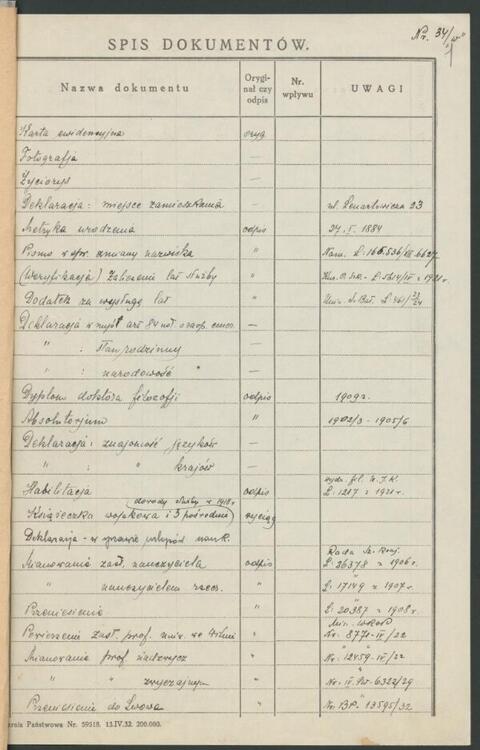 Nr. 34/
SPIS DOKUMENTÓW.
Nazwa dokumentu
Orygi-
nał czy
odpis
Nr.
wpływu
UWAGI
Karta ewidencyjna oryg
Fotografja —
Życiorys —
Deklaracja: miejsce zamieszkania — ul. Lenartowicza 23
Metryka urodzenia odpis 24. 5. 1884
Pismo w spr. zmiany nazwiska "
(Weryfikacja) Zaliczenie lat służby "
Dodatek za wysługę lat "
Deklaracja w myśl art 84 —
" : stan rodzinny —
" : narodowość " —
Dyplom doktora filozofji odpis 1909 r.
Absolutorjum " 1902/3 - 1905/6
Deklaracja: znajomość języków —
" : " krajów —
Habilitacja odpis L: 1287 z 1921 r.
(dowody służby w 1918 r.
Książeczka wojskowa i 3 pośrednie) wyciąg
Deklaracja - w sprawie nauk.
Mianowanie zast. nauczyciela odpis L: 26378 z 1906 r.
" nauczycielem rzecz. " L: 17149 z 1907 r.
Przeniesienie " L: 20387 z 1908 r.
Powierzenie zast. prof. uniw. we Wilnie " Nr. 8770-IV/22
Mianowanie prof nadzwycz " Nr. 12459-IV/22
" " zwyczajnym " Nr. IV. 6322/29
Przeniesienie do Lwowa " Nr. BP. 13595/32
Państwowa Nr. 59318. 13.IV.32. 200.000.